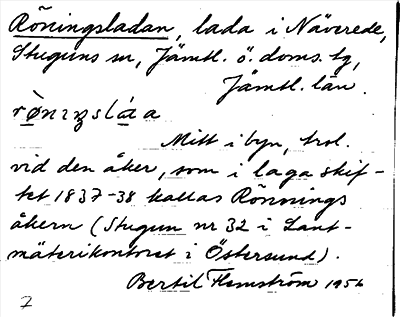 Röningsladan, lada i Näverede,
Stuguns sn, Jämtl. ö. doms. tg,
Jämtl. län.
rø̀nıŋsláa
Mitt i byn, trol.
vid den åker, som i laga skif-
tet 1837-38 kallas Rönnings
åkern (Stugun nr 32 i Lant-
mäterikontoret i Östersund).
Bertil Flemström 1956
7